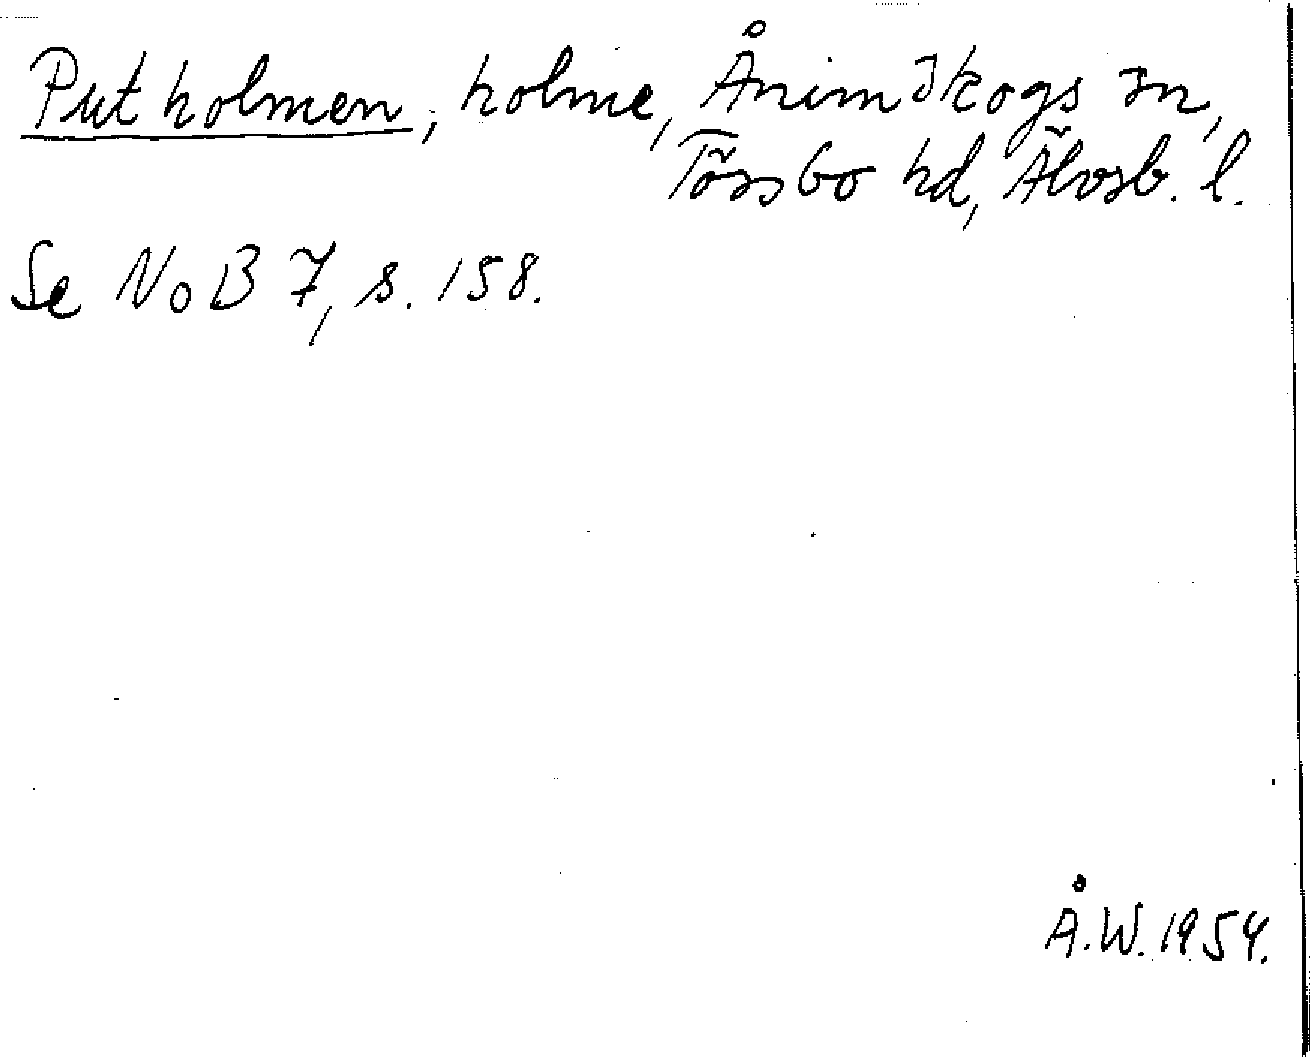 Putholmen, holme, Ånimskogs sn,
Tössbo hd, Älvsb. l.
Se NoB 7, s. 158.
Å.W. 1954.